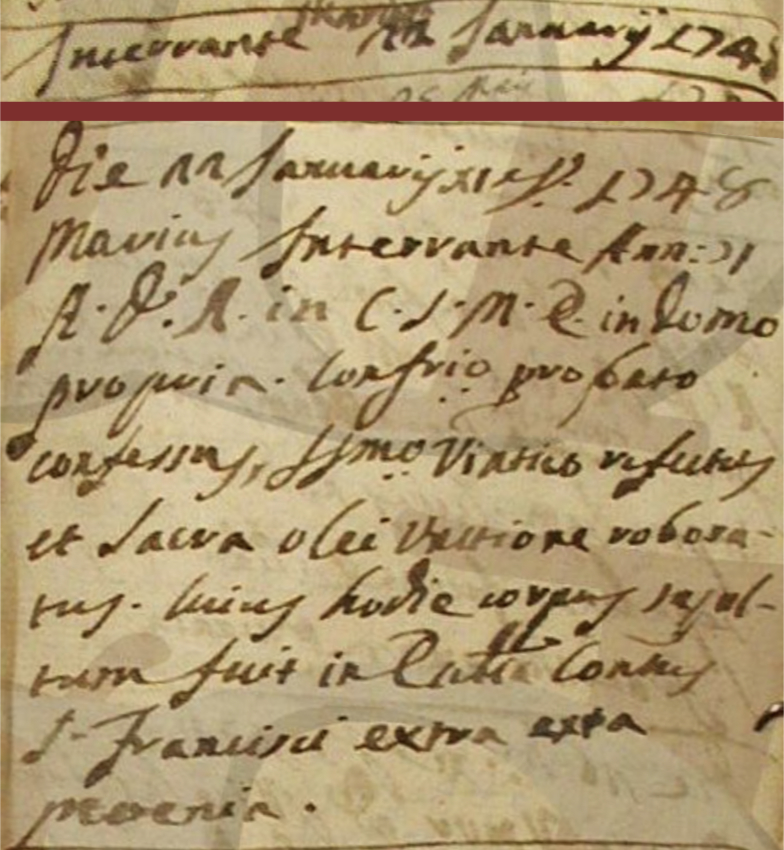 Intervrante 22 Januarij 1748
Die 22 Januarij XI 1748
Marius Intervrante Ann: 71
A. D. A. in C. S. M. E. in domo
propria. Confrio probato
confessus, SSmo Viatico refectus
et sacra olei Unctione robora-
tus. Cuius hodie corpus sepul-
tum fuit in Eccla Contus
S. Francisci extra